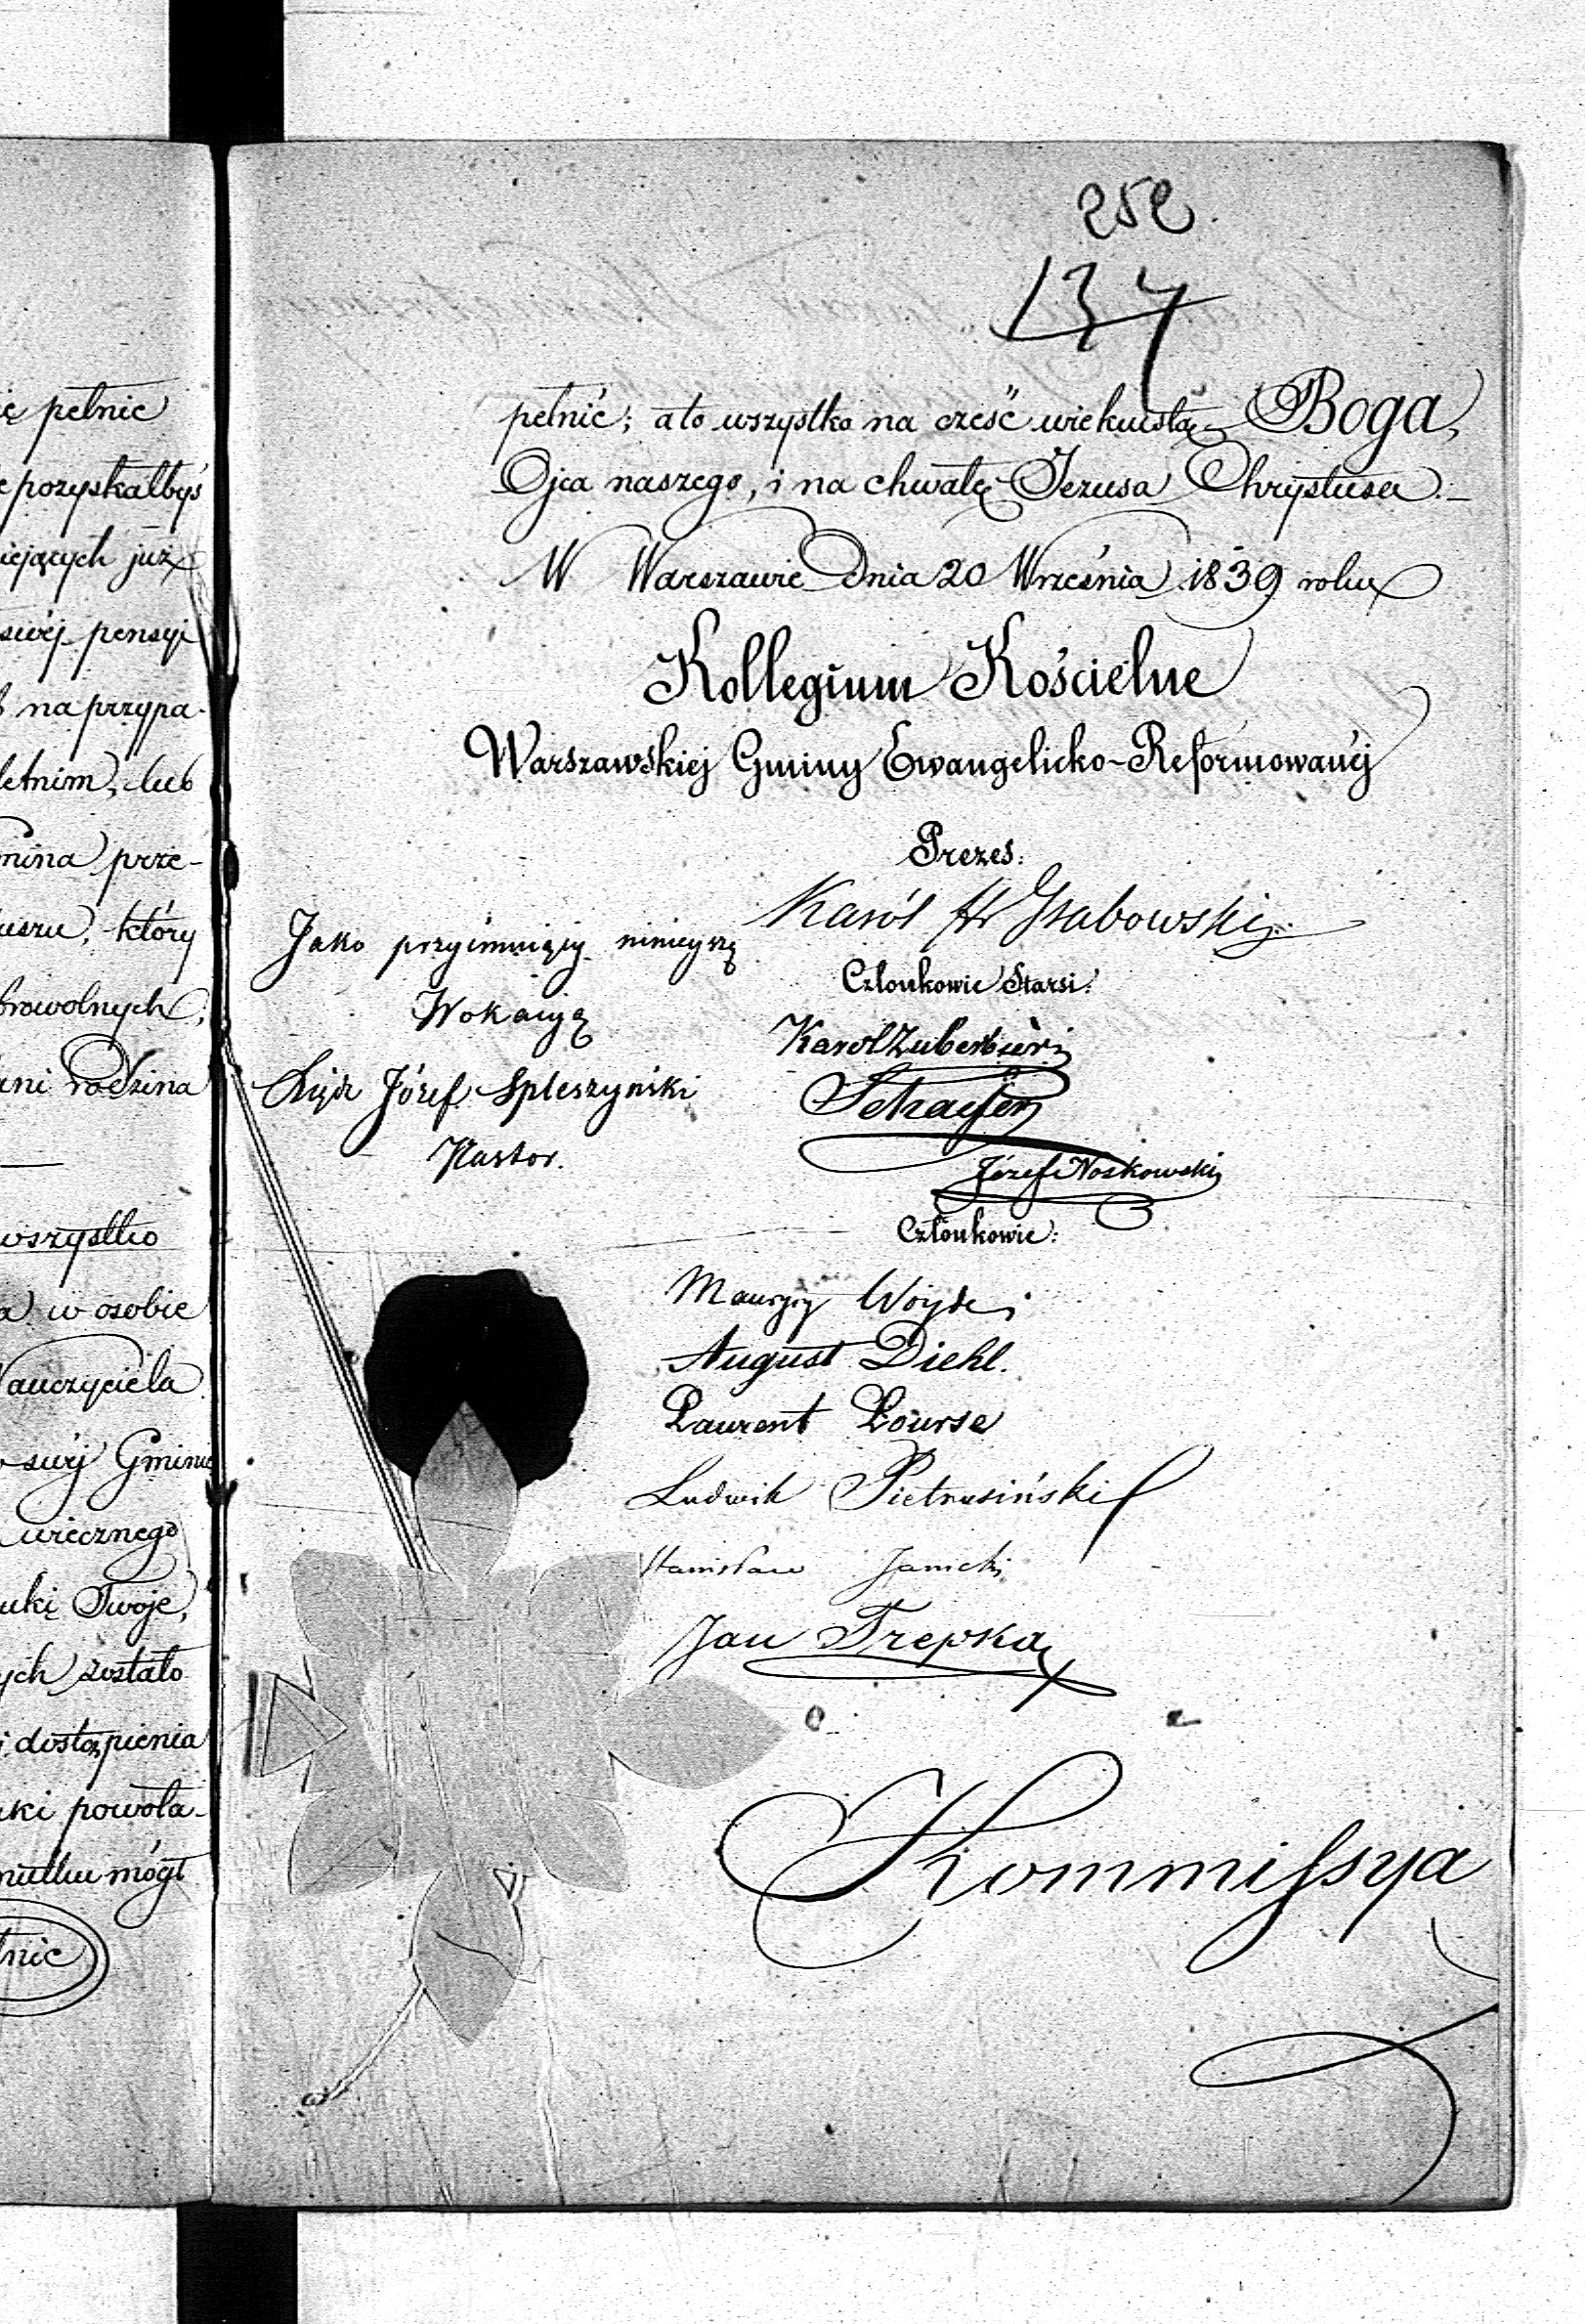 ię pełnić
e pozyskałbyś
iejących już
swéj pensyi
ć na przypa-
letnim, lub
mina prze-
uszu, który
browolnych,
ani rodzina
wszystko
a w osobie
Nauczyciela
swéj Gminie
wiecznego
uki Twoje,
ych zostało
i dostąpienia
ki powoła-
mógł
łnić
252.
137
pełnić; a to wszystko na cześć wiekuistą Boga,
Ojca naszego, i na chwałę Jezusa Chrystusa.—
W Warszawie Dnia 20 Września 1839 roku
Kollegium Kościelne
Warszawskiej Gminy Ewangelicko-Reformowanéj
Prezes:
Karól Hr Grabowski
Jako przyimuiący ninieyszą
Wokacyą
Xiądz Józef Spleszyński
Pastor.
Członkowie Starsi:
Karol Zuberbier
Schaeffer
Józef Noskowski
Członkowie:
Maurycy Woyde
August Diehl.
Laurent Lourse
Ludwik Pietrusiński
Stanisław Janicki
Jan Trepka
Kommissya